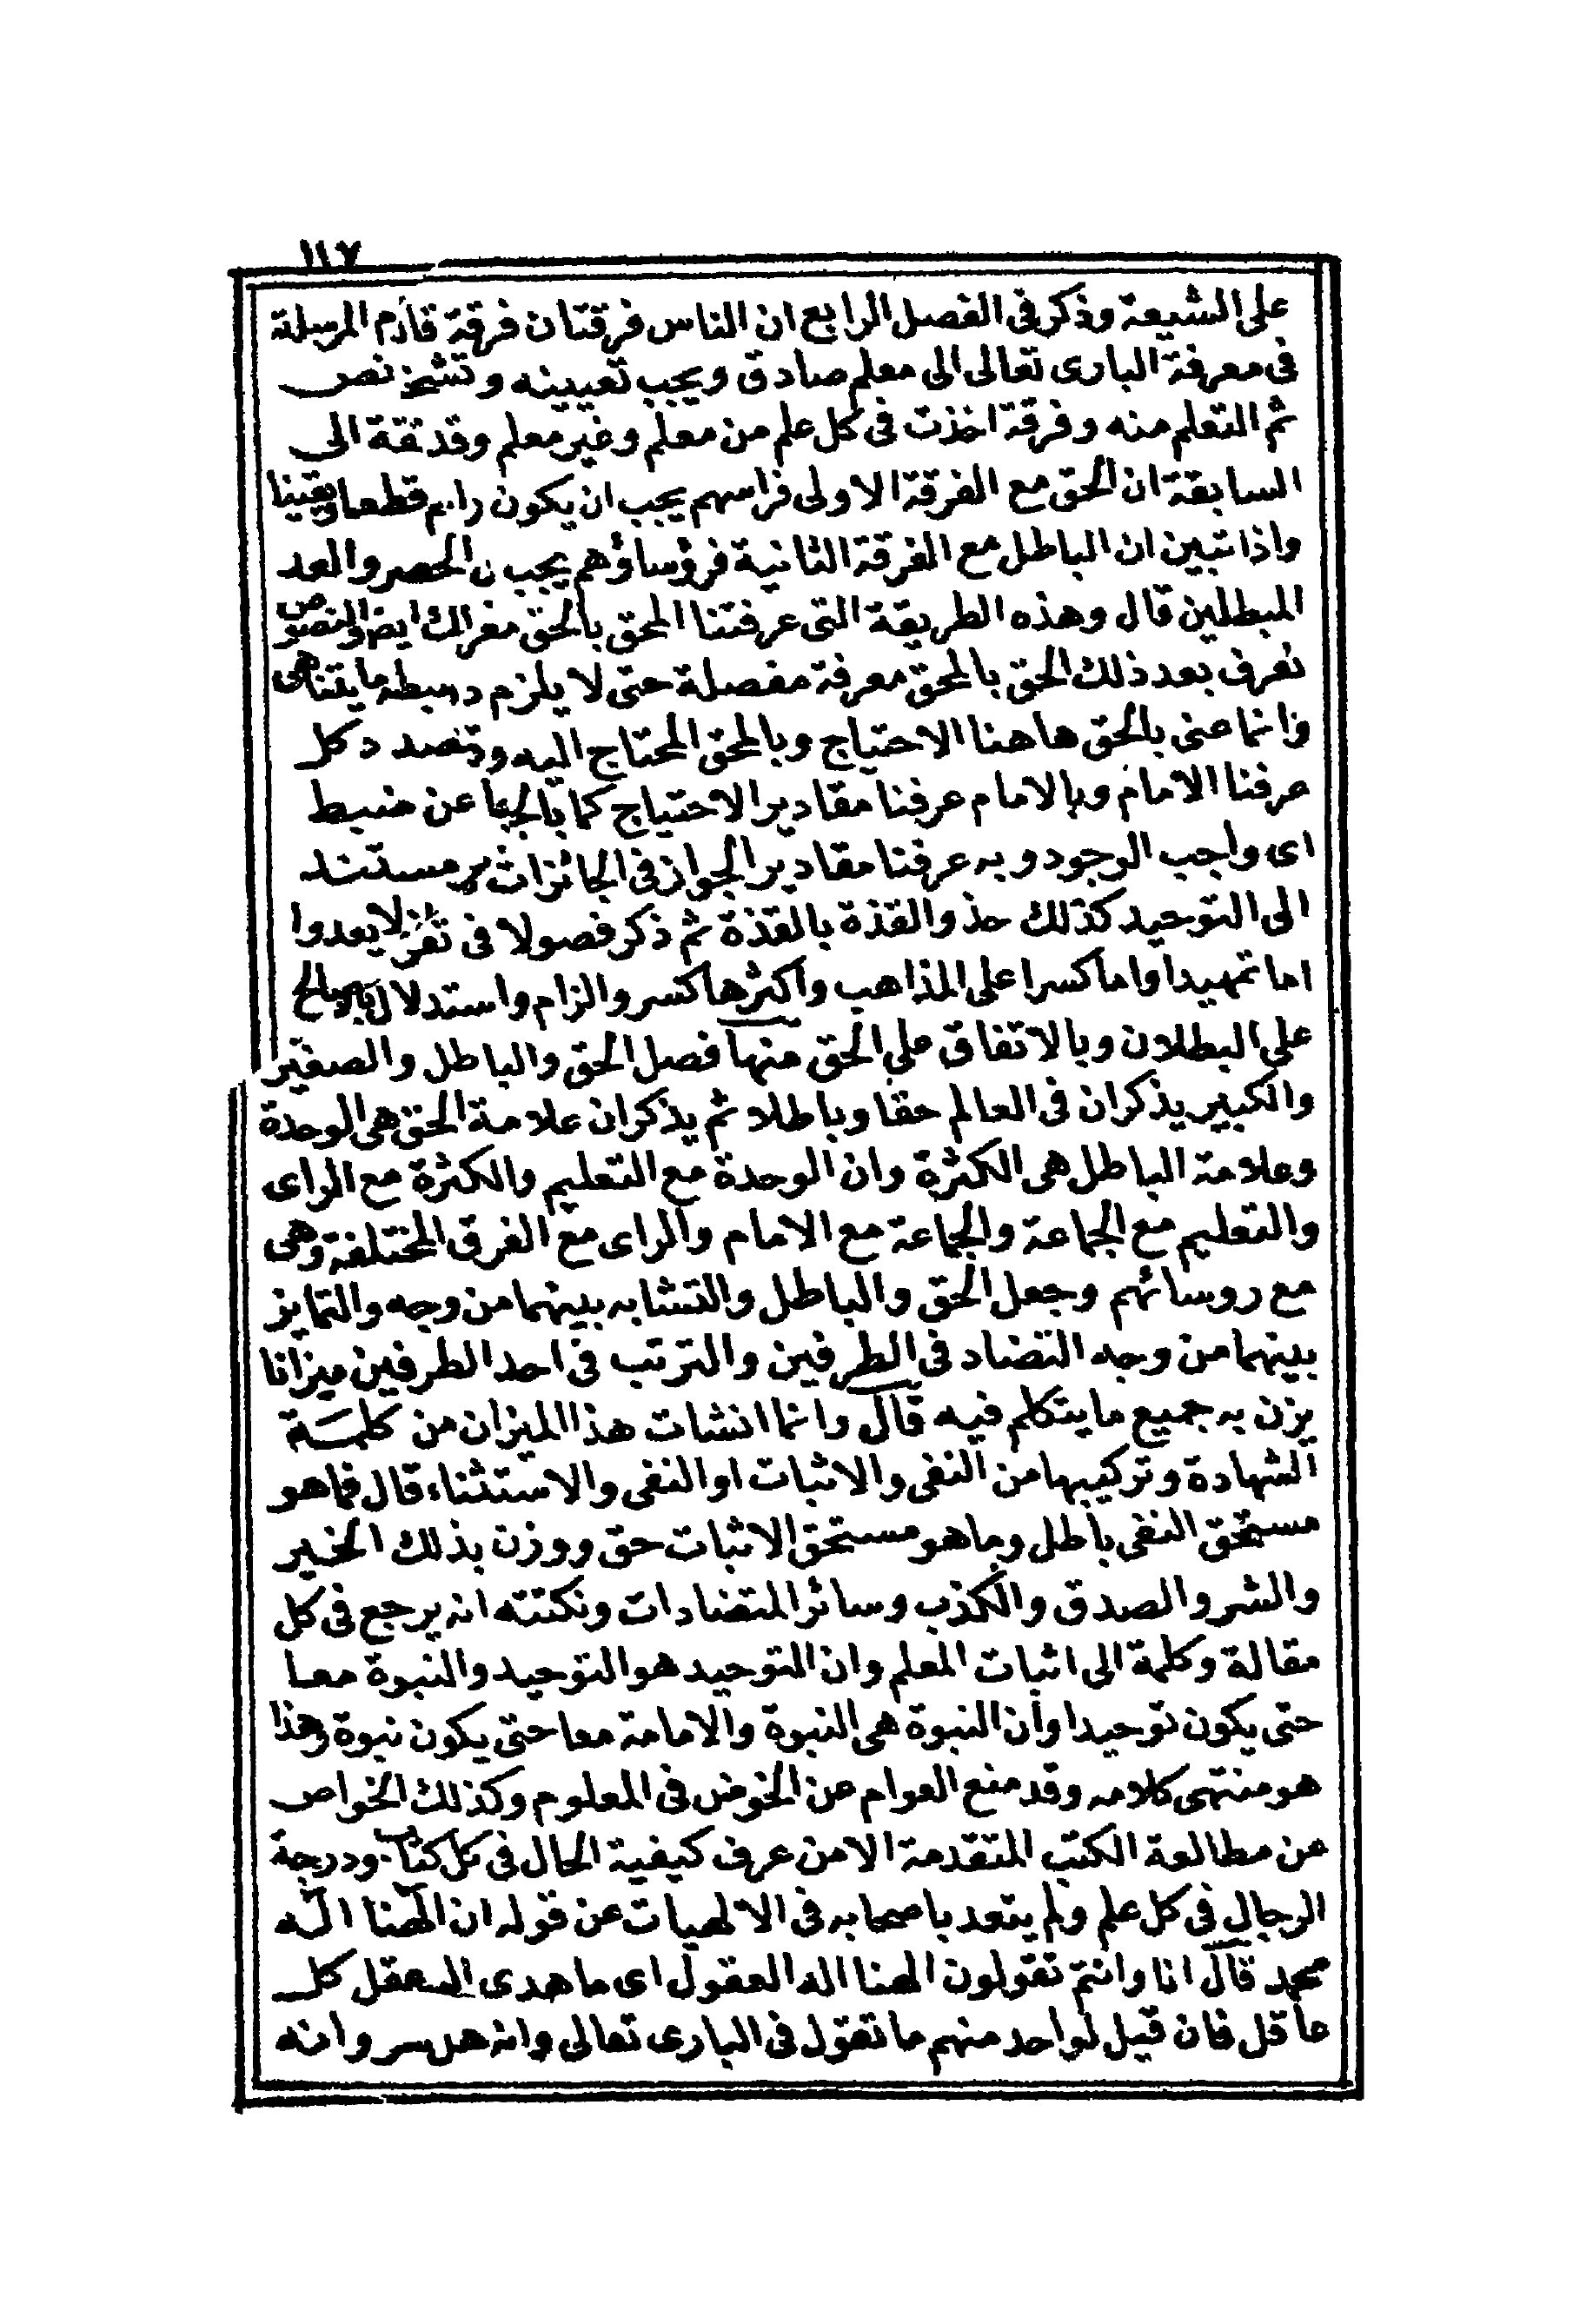 ١١٧
على الشيعة وذكر فى الفصل الرابع ان الناس فرقتان فرقة
فى معرفة البارى تعالى الى معلم صادق ويجب تعيينه
ثم التعلم منه وفرقة اخذت فى كل علم من معلم وغير معلم وقد
السابقة ان الحق مع الفرقة الاولى فراسهم يجب ان يكون قطعا ويقينا
واذا تبين ان الباطل مع الفرقة الثانية فرؤساؤهم يجب
المبطلين قال وهذه الطريقة التى عرفتنا المحق بالحق
نعرف بعد ذلك الحق بالمحق معرفة مفصلة حتى لا يلزم
وانما عنى بالحق هاهنا الاحتياج وبالمحق المحتاج اليه
عرفنا الامام وبالامام عرفنا مقادير الاحتياج كما عن ضبط
اى واجب الوجود وبه عرفنا مقادير الجواز فى الجائزات
الى التوحيد كذلك حذو القذة بالقذة ثم ذكر فصولا فى
اما تمهيدا واما كسرا على المذاهب واكثرها كسر والزام واستدلال
على البطلان وبالاتفاق على الحق منها فصل الحق والباطل والصغير
والكبير يذكر ان فى العالم حقا وباطلا ثم يذكر ان علامة الحق هى الوحدة
وعلامة الباطل هى الكثرة وان الوحدة مع التعليم والكثرة مع الراى
والتعليم مع الجماعة والجماعة مع الامام والراى مع الفرق المختلفة وهى
مع روسائهم وجعل الحق والباطل والتشابه بينهما من وجه والتمايز
بينهما من وجه التضاد فى الطرفين والترتب فى احد الطرفين ميزانا
يزن به جميع ما يتكلم فيه قال وانما انشات هذا الميزان من كلمة
الشهادة وتركيبها من النفى والاثبات او النفى والاستثناء قال فما هو
مستحق النفى باطل وما هو مستحق الاثبات حق ووزن بذلك الخير
والشر والصدق والكذب وسائر المتضادات ونكتته انه يرجع فى كل
مقالة وكلمة الى اثبات المعلم وان التوحيد هو التوحيد والنبوة معا
حتى يكون توحيدا وان النبوة هى النبوة والامامة معا حتى يكون نبوة وهذا
هو منتهى كلامه وقد منع العوام عن الخوض فى المعلوم وكذلك الخواص
عن مطالعة الكتب المتقدمة الا من عرف كيفية الحال فى كل كتاب ودرجة
الرجال فى كل علم ولم يتعد باصحابه فى الالهيات عن قوله ان الهنا اله
محمد قال انا وانتم تقولون الهنا اله العقول اى ما هدى اليه عقل كل
عاقل فان قيل لواحد منهم ما تقول فى البارى تعالى وانه هل وانه